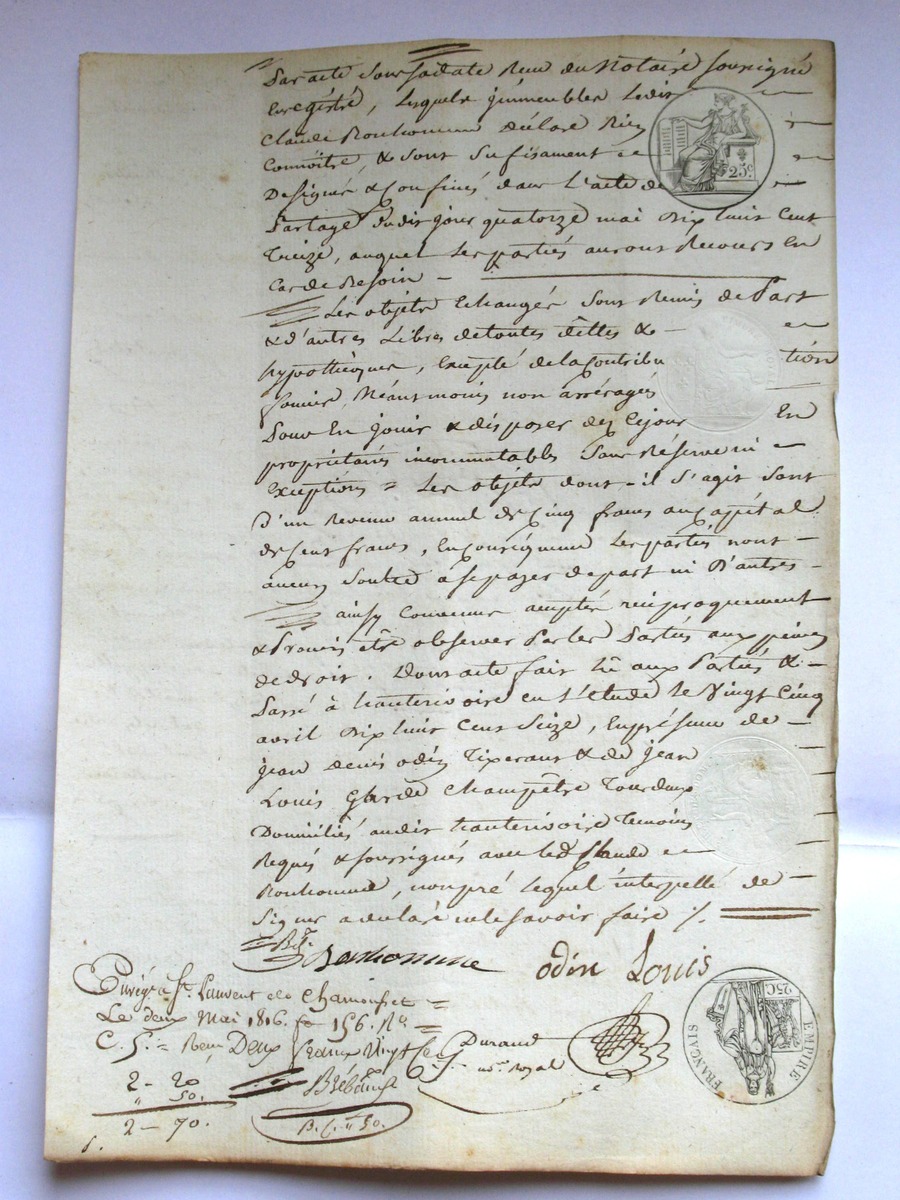 Par acte Sousſadate Reçu du Notaire Soussigné
Enregistré, Lesquels jmmeubles Ledit
Claude Bonhomme déclare Bien
Connoitre, & sont sufisament
Designés & Confinés dans L'acte de
Partage dudit jour quatorze mai dix huit Cent
Treize, auquel Les parties auront Recours En
Cas de Besoin
Les objets Echangés Sont Remis de Part
& d'autres Libres de toutes dettes &
hypothèques, Excepté de la Contribu tion
foncière, Néantmoins non arréragés
Pour En jouir & disposer dez Cejour En
propriétaires incommutables Sans Réserve ni
Exceptions = Les objets dont-il S'agit Sont
D'un Revenu annuel de Cinq francs au Capital
de Cent francs, En Conséquence Les parties nont
aucun Soulte a Sepayer de part ni D'autres
ainsy Convenu accepté reciproquement
& Promis être observer Par les Parties aux peines
de droit. Dont acte fait lû aux Parties &
Passé à hauterivoire en L'étude le Vingt Cinq
avril dix huit Cent Seize, En présence de
jean denis odin Tixerant & de jean
Louis Garde Champêtre Tous deux
Domiciliés audit hauterivoire Temoins
Requis & Soussignés avec led Claude
Bonhomme, non pré Lequel interpellé de
Signer a déclaré ne le savoir faire ./.
Bonhomme odin Louis
Enregé a St Laurent de Chamousset
Le deux Mai 1816. fo 156. Ro.
C. 5. = Reçu Deux francs Vingt Ces
Durand
no. Royal
2 - 20
" 50.
2 - 70.
B. C. " 50.
25c.
25C
EMPIRE FRANÇAIS